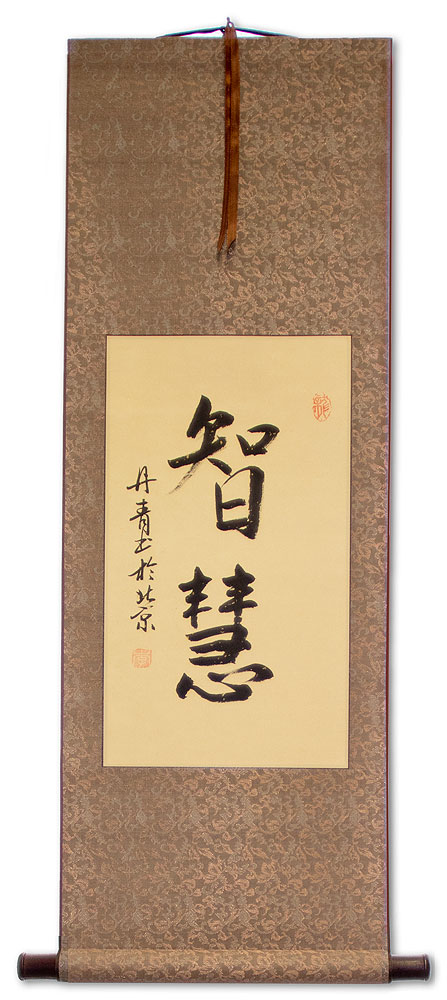 智慧
丹青书於北京